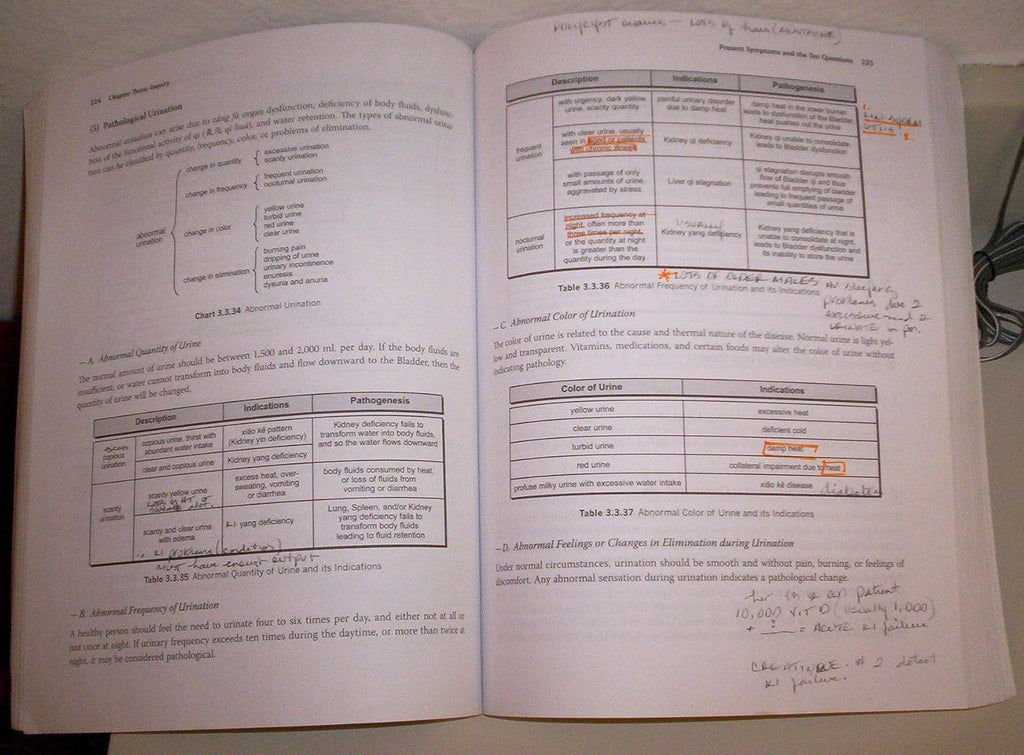 224 Chapter Three Inquiry
(5) Pathological Urination
Abnormal urination can arise due to zàng fǔ organ dysfunction, deficiency of body fluids, dysfunc-
tion of the functional activity of qì and water retention. The types of abnormal urina-
tion can be classified by quantity, frequency, color, or problems of elimination.
abnormal urination
change in quantity
excessive urination
scanty urination
change in frequency
frequent urination
nocturnal urination
change in color
yellow urine
turbid urine
red urine
clear urine
change in elimination
burning pain
dripping of urine
urinary incontinence
enuresis
dysuria and anuria
Chart 3.3.34 Abnormal Urination
—A. Abnormal Quantity of Urine
The normal amount of urine should be between 1,500 and 2,000 mL per day. If the body fluids are
insufficient, or water cannot transform into body fluids and flow downward to the Bladder, then the
quantity of urine will be changed.
Description Indications Pathogenesis
copious urination
copious urine, thirst with abundant water intake
xiāo kě pattern (Kidney yin deficiency)
Kidney deficiency fails to transform water into body fluids, and so the water flows downward
clear and copious urine
Kidney yang deficiency
scanty urination
scanty yellow urine
excess heat, over-sweating, vomiting or diarrhea
body fluids consumed by heat, or loss of fluids from vomiting or diarrhea
scanty and clear urine with edema
KI yang deficiency
Lung, Spleen, and/or Kidney yang deficiency fails to transform body fluids leading to fluid retention
i.e. KI problems (condition)
must have enough output
Table 3.3.35 Abnormal Quantity of Urine and its Indications
—B. Abnormal Frequency of Urination
A healthy person should feel the need to urinate four to six times per day, and either not at all or
just once at night. If urinary frequency exceeds ten times during the daytime, or more than twice at
night, it may be considered pathological.
Present Symptoms and the Ten Questions 225
Description Indications Pathogenesis
frequent urination
with urgency, dark yellow urine, scanty quantity
painful urinary disorder due to damp heat
damp heat in the lower burner leads to dysfunction of the Bladder heat pushes out the urine
with clear urine, usually seen in aged or patients with chronic illness
Kidney qi deficiency
Kidney qi unable to consolidate leads to Bladder dysfunction
with passage of only small amounts of urine, aggravated by stress
Liver qi stagnation
qi stagnation disrupts smooth flow of Bladder qi and thus prevents full emptying of bladder leading to frequent passage of small quantities of urine
nocturnal urination
increased frequency at night, often more than three times per night, or the quantity at night is greater than the quantity during the day.
USUALLY
Kidney yang deficiency
Kidney yang deficiency that is unable to consolidate at night, leads to Bladder dysfunction and its inability to store the urine
* LOTS OF OLDER MALES
problems due 2
Table 3.3.36 Abnormal Frequency of Urination and its Indications
—C. Abnormal Color of Urination
The color of urine is related to the cause and thermal nature of the disease. Normal urine is light yel-
low and transparent. Vitamins, medications, and certain foods may alter the color of urine without
indicating pathology.
Color of Urine Indications
yellow urine excessive heat
clear urine deficient cold
turbid urine damp heat
red urine collateral impairment due to heat
profuse milky urine with excessive water intake xiāo kě disease diabetes
Table 3.3.37 Abnormal Color of Urine and its Indications
—D. Abnormal Feelings or Changes in Elimination during Urination
Under normal circumstances, urination should be smooth and without pain, burning, or feelings of
discomfort. Any abnormal sensation during urination indicates a pathological change.
patient
10,000 Vit D (usually 1,000)
+ ? = ACUTE KI failure
CREATININE 2 detect
KI failure.